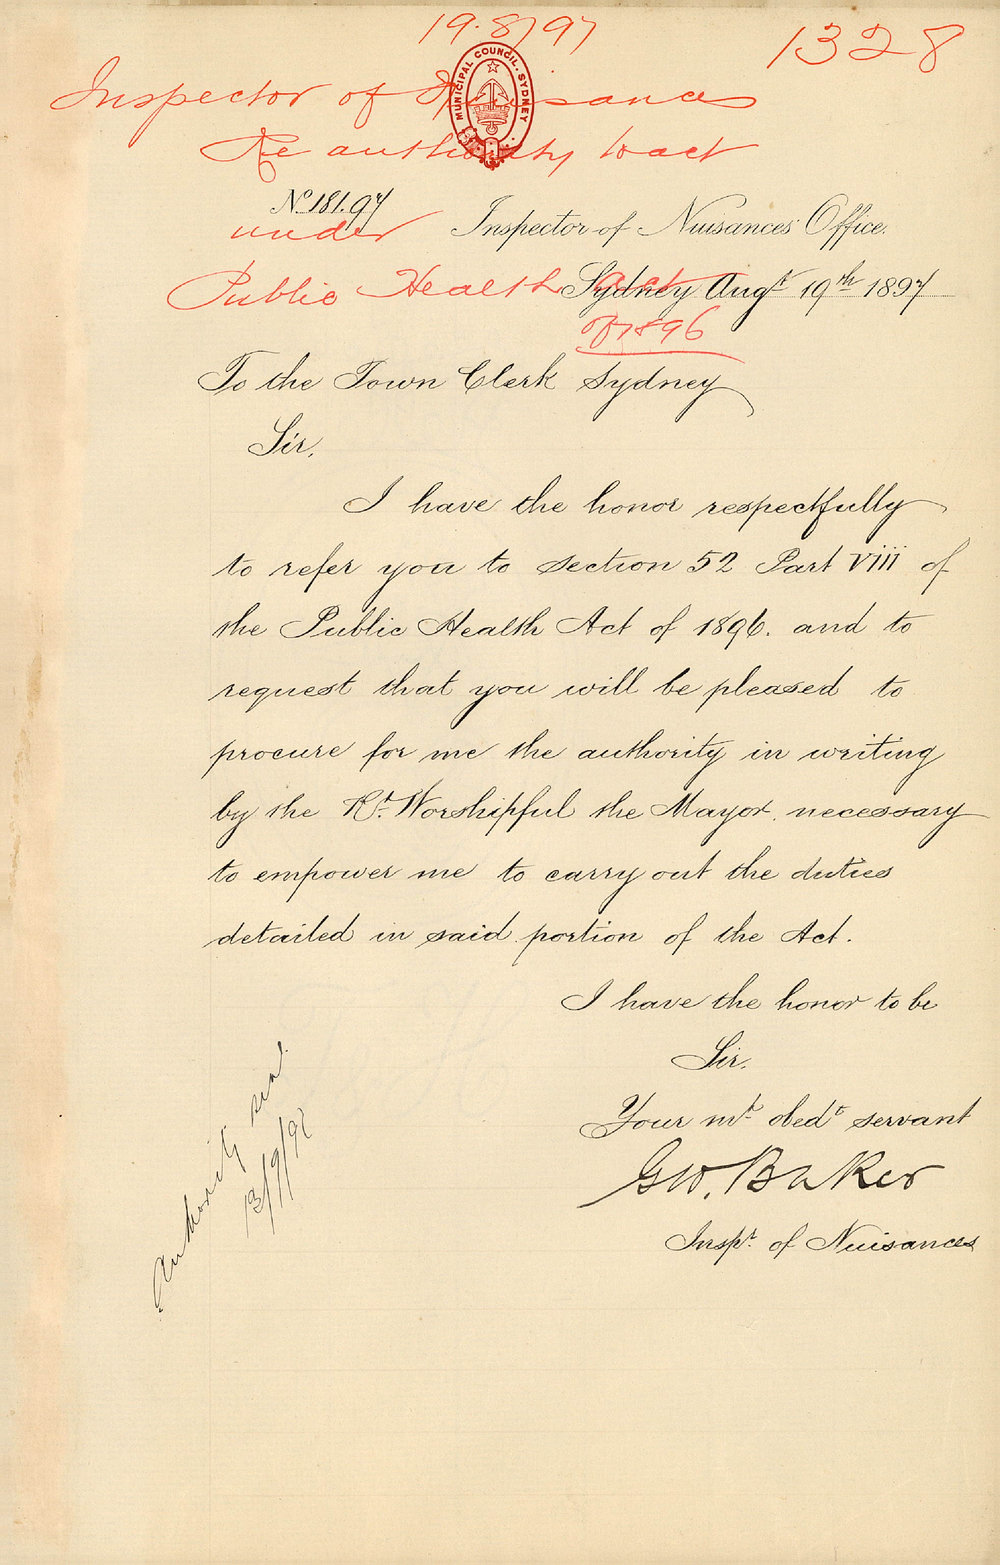 19.8/97
1328
MUNICIPAL COUNCIL. SYDNEY
Inspector of Nuisances
Re authority to act
No. 181.97
under
Inspector of Nuisances' Office.
Public Health Act
Sydney Augt 19th 1897
of 1896
To the Town Clerk Sydney
Sir,
I have the honor respectfully
to refer you to section 52 Part VIII of
the Public Health Act of 1896. and to
request that you will be pleased to
procure for me the authority in writing
by the Rt. Worshipful the Mayor, necessary
to empower me to carry out the duties
detailed in said portion of the Act.
I have the honor to be
Sir,
Your mt. obedt servant
Geo. Baker
Inspt. of Nuisances
Authority
13/9/97